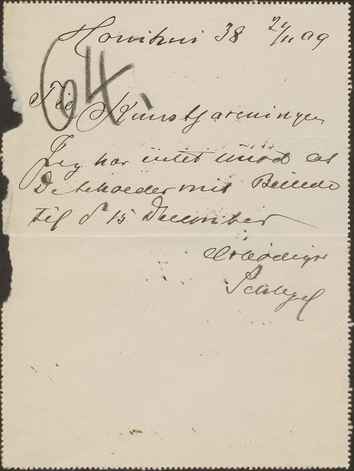 38 24/11 09
64.
Til Kunstforeningen
Jeg har intet imod at
De beholder mit Billede
til d 15 December
Ærbødigst